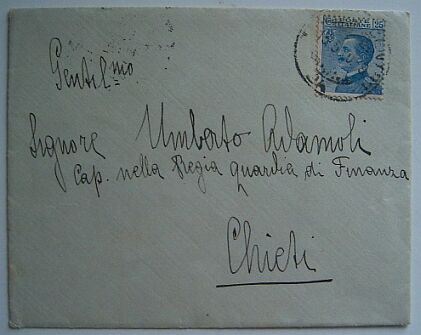 POSTE ITALIANE
25
Gentil.mo
Signore Umberto Adamoli
Cap. nella Regia guardia di Finanza
Chieti